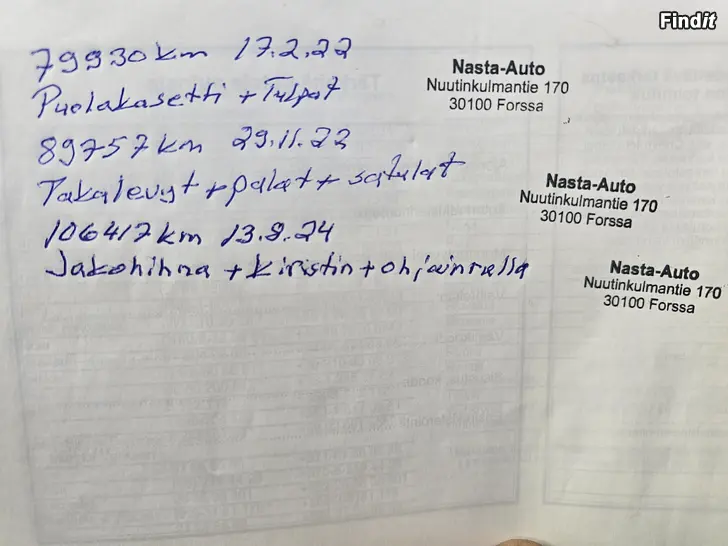 Findit
79930 km 17.2.22
Puolakasetti + Tulpat
89757 km 29.11.22
Takalevyt + palat + satulat
106417 km 13.8.24
Jakohihna + kiristin + ohjainrulla
Nasta-Auto
Nuutinkulmantie 170
30100 Forssa
Nasta-Auto
Nuutinkulmantie 170
30100 Forssa
Nasta-Auto
Nuutinkulmantie 170
30100 Forssa